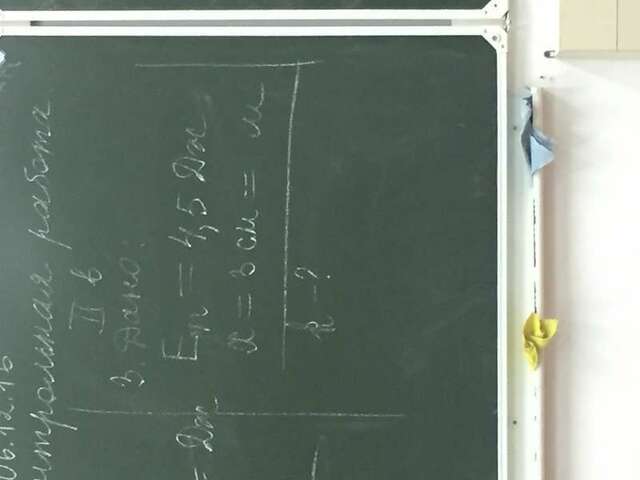 06.12.16
контрольная работа
II в
3. Дано:
Eп = 4,5 Дж
x = 3 см = м
k - ?
= Дж